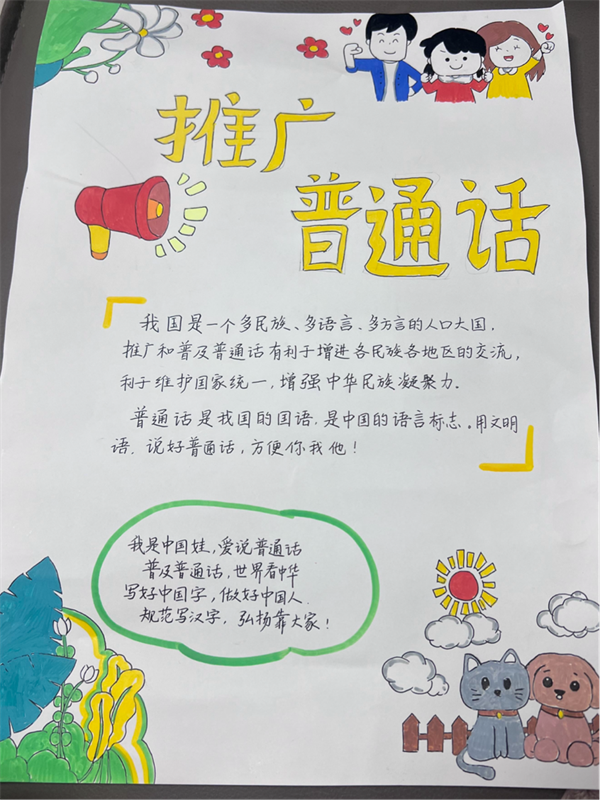 推广
普通话
我国是一个多民族、多语言、多方言的人口大国.
推广和普及普通话有利于增进各民族各地区的交流,
利于维护国家统一,增强中华民族凝聚力.
普通话是我国的国语.是中国的语言标志.用文明
语.说好普通话,方便你我他!
我是中国娃,爱说普通话
普及普通话,世界看中华
写好中国字,做好中国人.
规范写汉字,弘扬靠大家!